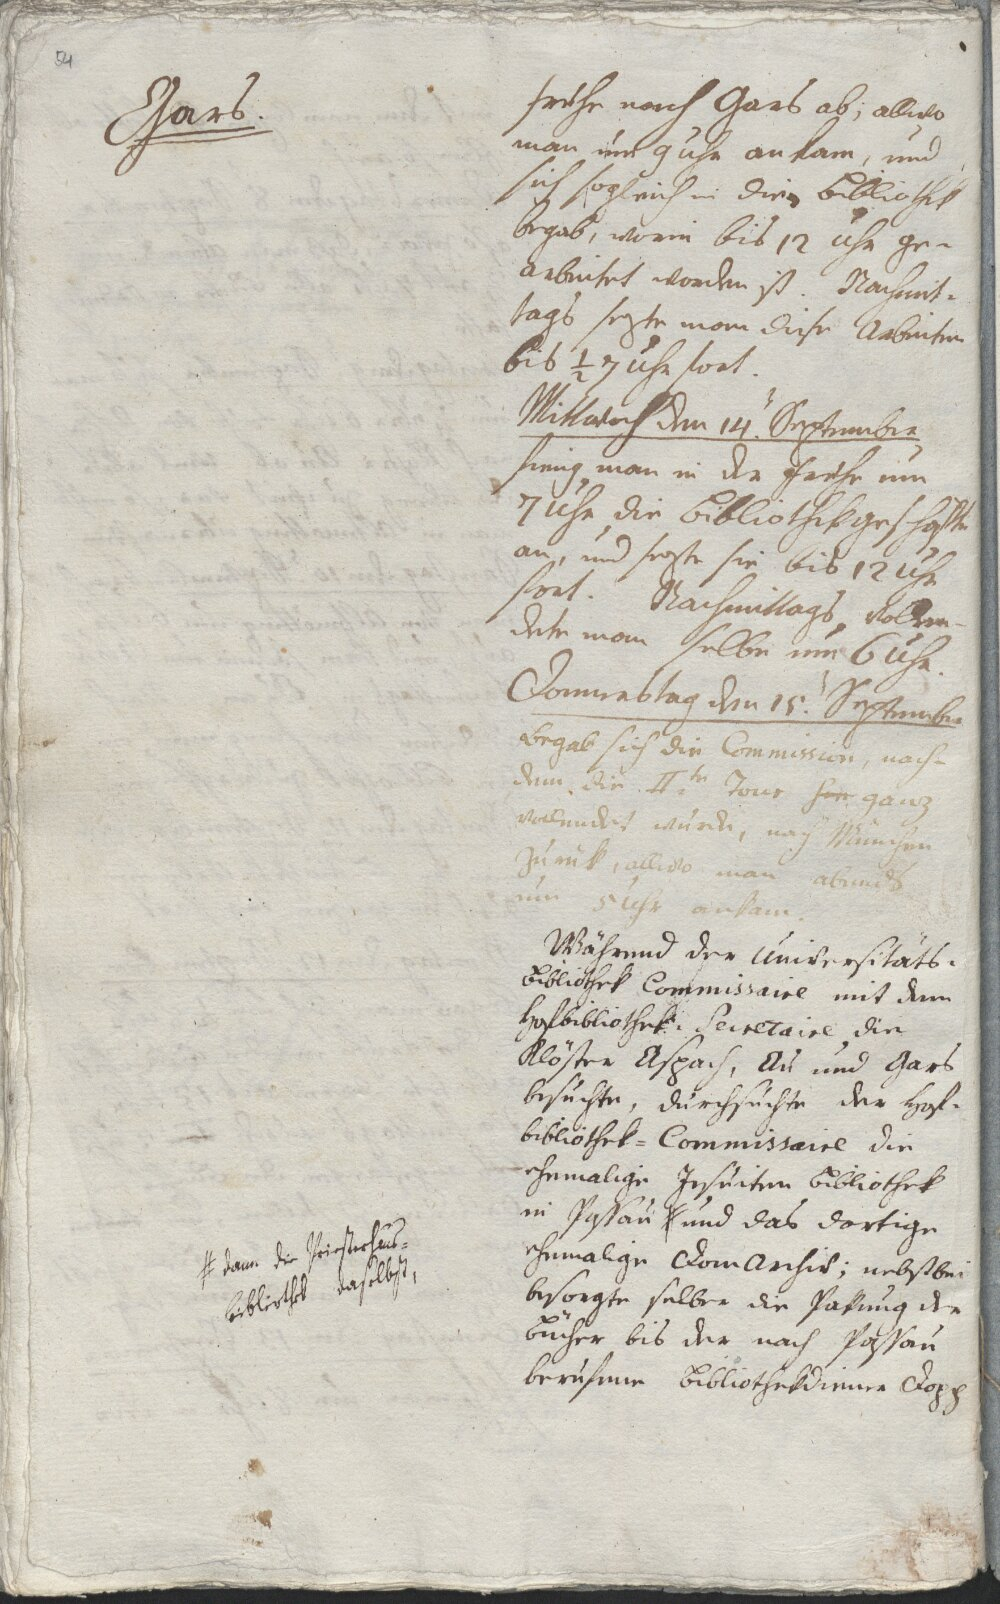 54
Gars.
frühe nach Gars ab; allwo
man um 9 Uhr ankam, und
sich sogleich in die Bibliothek
begab, worin bis 12 Uhr ge-
arbeitet worden ist. Nachmit-
tags sezte man diese Arbeiten
bis ½ 7 Uhr fort.
Mittwoch den 14. September
fieng man in der Frühe um
7 Uhr die Bibliothekgeschäfte
an, und sezte sie bis 12 Uhr
fort. Nachmittags vollen-
dete man selbe um 6 Uhr.
Donnerstag den 15. September
begab sich die Commission, nach-
dem die IIte Tour ganz
vollendet wurde, nach München
zurük, allwo man abends
um 5 Uhr ankam.
Während der Universitäts-
bibliothek Commissaire mit dem
Hofbibliothek. Secretaire die
Klöster Aspach, Au und Gars
besuchte, durchsuchte der Hof-
bibliothek=Commissaire die
ehemalige Jesuiten Bibliothek
in Passau # und das dortige
ehemalige Dom Archiv; nebstbei
besorgte selber die Pakung der
Bücher bis der nach Passau
berufene Bibliothekdiener Dopp
# dann die Priesterhaus-
bibliothek daselbst,